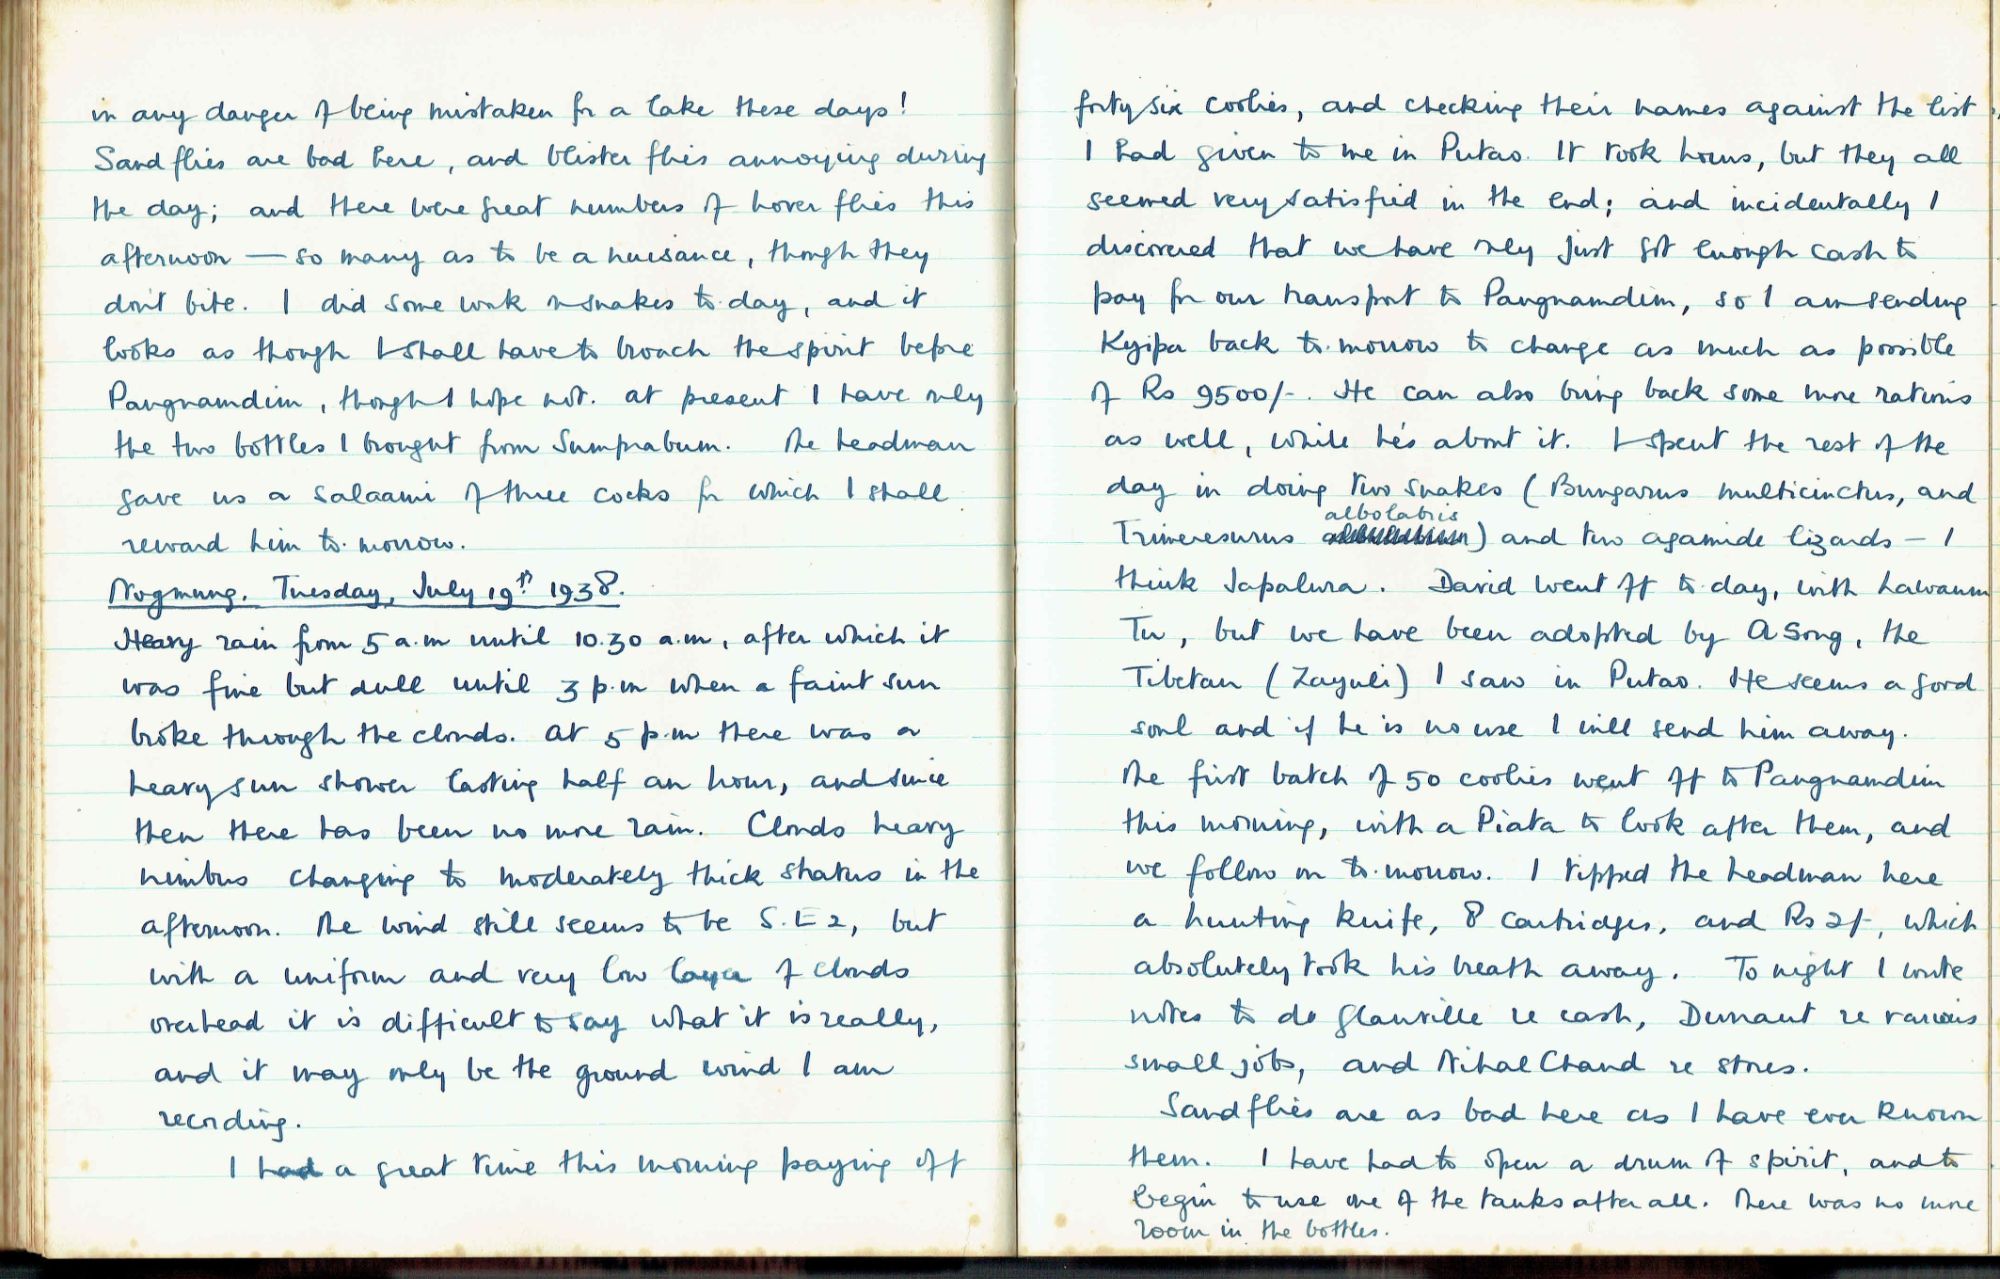 in any danger of being mistaken for a lake these days!
Sandflies are bad here, and blister flies annoying during
the day; and there were great numbers of hover flies this
afternoon — so many as to be a nuisance, though they
don't bite. I did some work on snakes to-day, and it
looks as though I shall have to broach the spirit before
Pangnamdim, though I hope not. At present I have only
the two bottles I brought from Sumprabum. The headman
gave us a salaami of three cocks for which I shall
reward him to-morrow.
Nogmung. Tuesday, July 19th 1938.
Heavy rain from 5 a.m until 10.30 a.m, after which it
was fine but dull until 3 p.m when a faint sun
broke through the clouds. At 5 p.m there was a
heavy sun shower lasting half an hour, and since
then there has been no more rain. Clouds heavy
nimbus changing to moderately thick stratus in the
afternoon. The wind still seems to be S.E 2, but
with a uniform and very low layer of clouds
overhead it is difficult to say what it is really,
and it may only be the ground wind I am
recording.
I had a great time this morning paying off
forty six coolies, and checking their names against the list
I had given to me in Putao. It took hours, but they all
seemed very satisfied in the end; and incidentally I
discovered that we have only just got enough cash to
pay for our transport to Pangnamdim, so I am sending
Kyipa back to-morrow to change as much as possible
of Rs 9500/-. He can also bring back some more rations
as well, while he's about it. I spent the rest of the
day in doing two snakes (Bungarus multicinctus, and
albolabris
Trimeresurus ) and two agamide lizards - I
think Japalura. David went off to-day, with Lawaum
Tu, but we have been adopted by A Song, the
Tibetan (Zayuli) I saw in Putao. He seems a good
soul and if he is no use I will send him away.
The first batch of 50 coolies went off to Pangnamdim
this morning, with a Piata to look after them, and
we follow on to-morrow. I tipped the headman here
a hunting knife, 8 cartridges, and Rs 2/-, which
absolutely took his breath away. To night I wrote
notes to de Glanville re cash, Durrant re various
small jobs, and Nihal Chand re stores.
Sandflies are as bad here as I have ever known
them. I have had to open a drum of spirit, and to
begin to use one of the tanks after all. There was no more
room in the bottles.